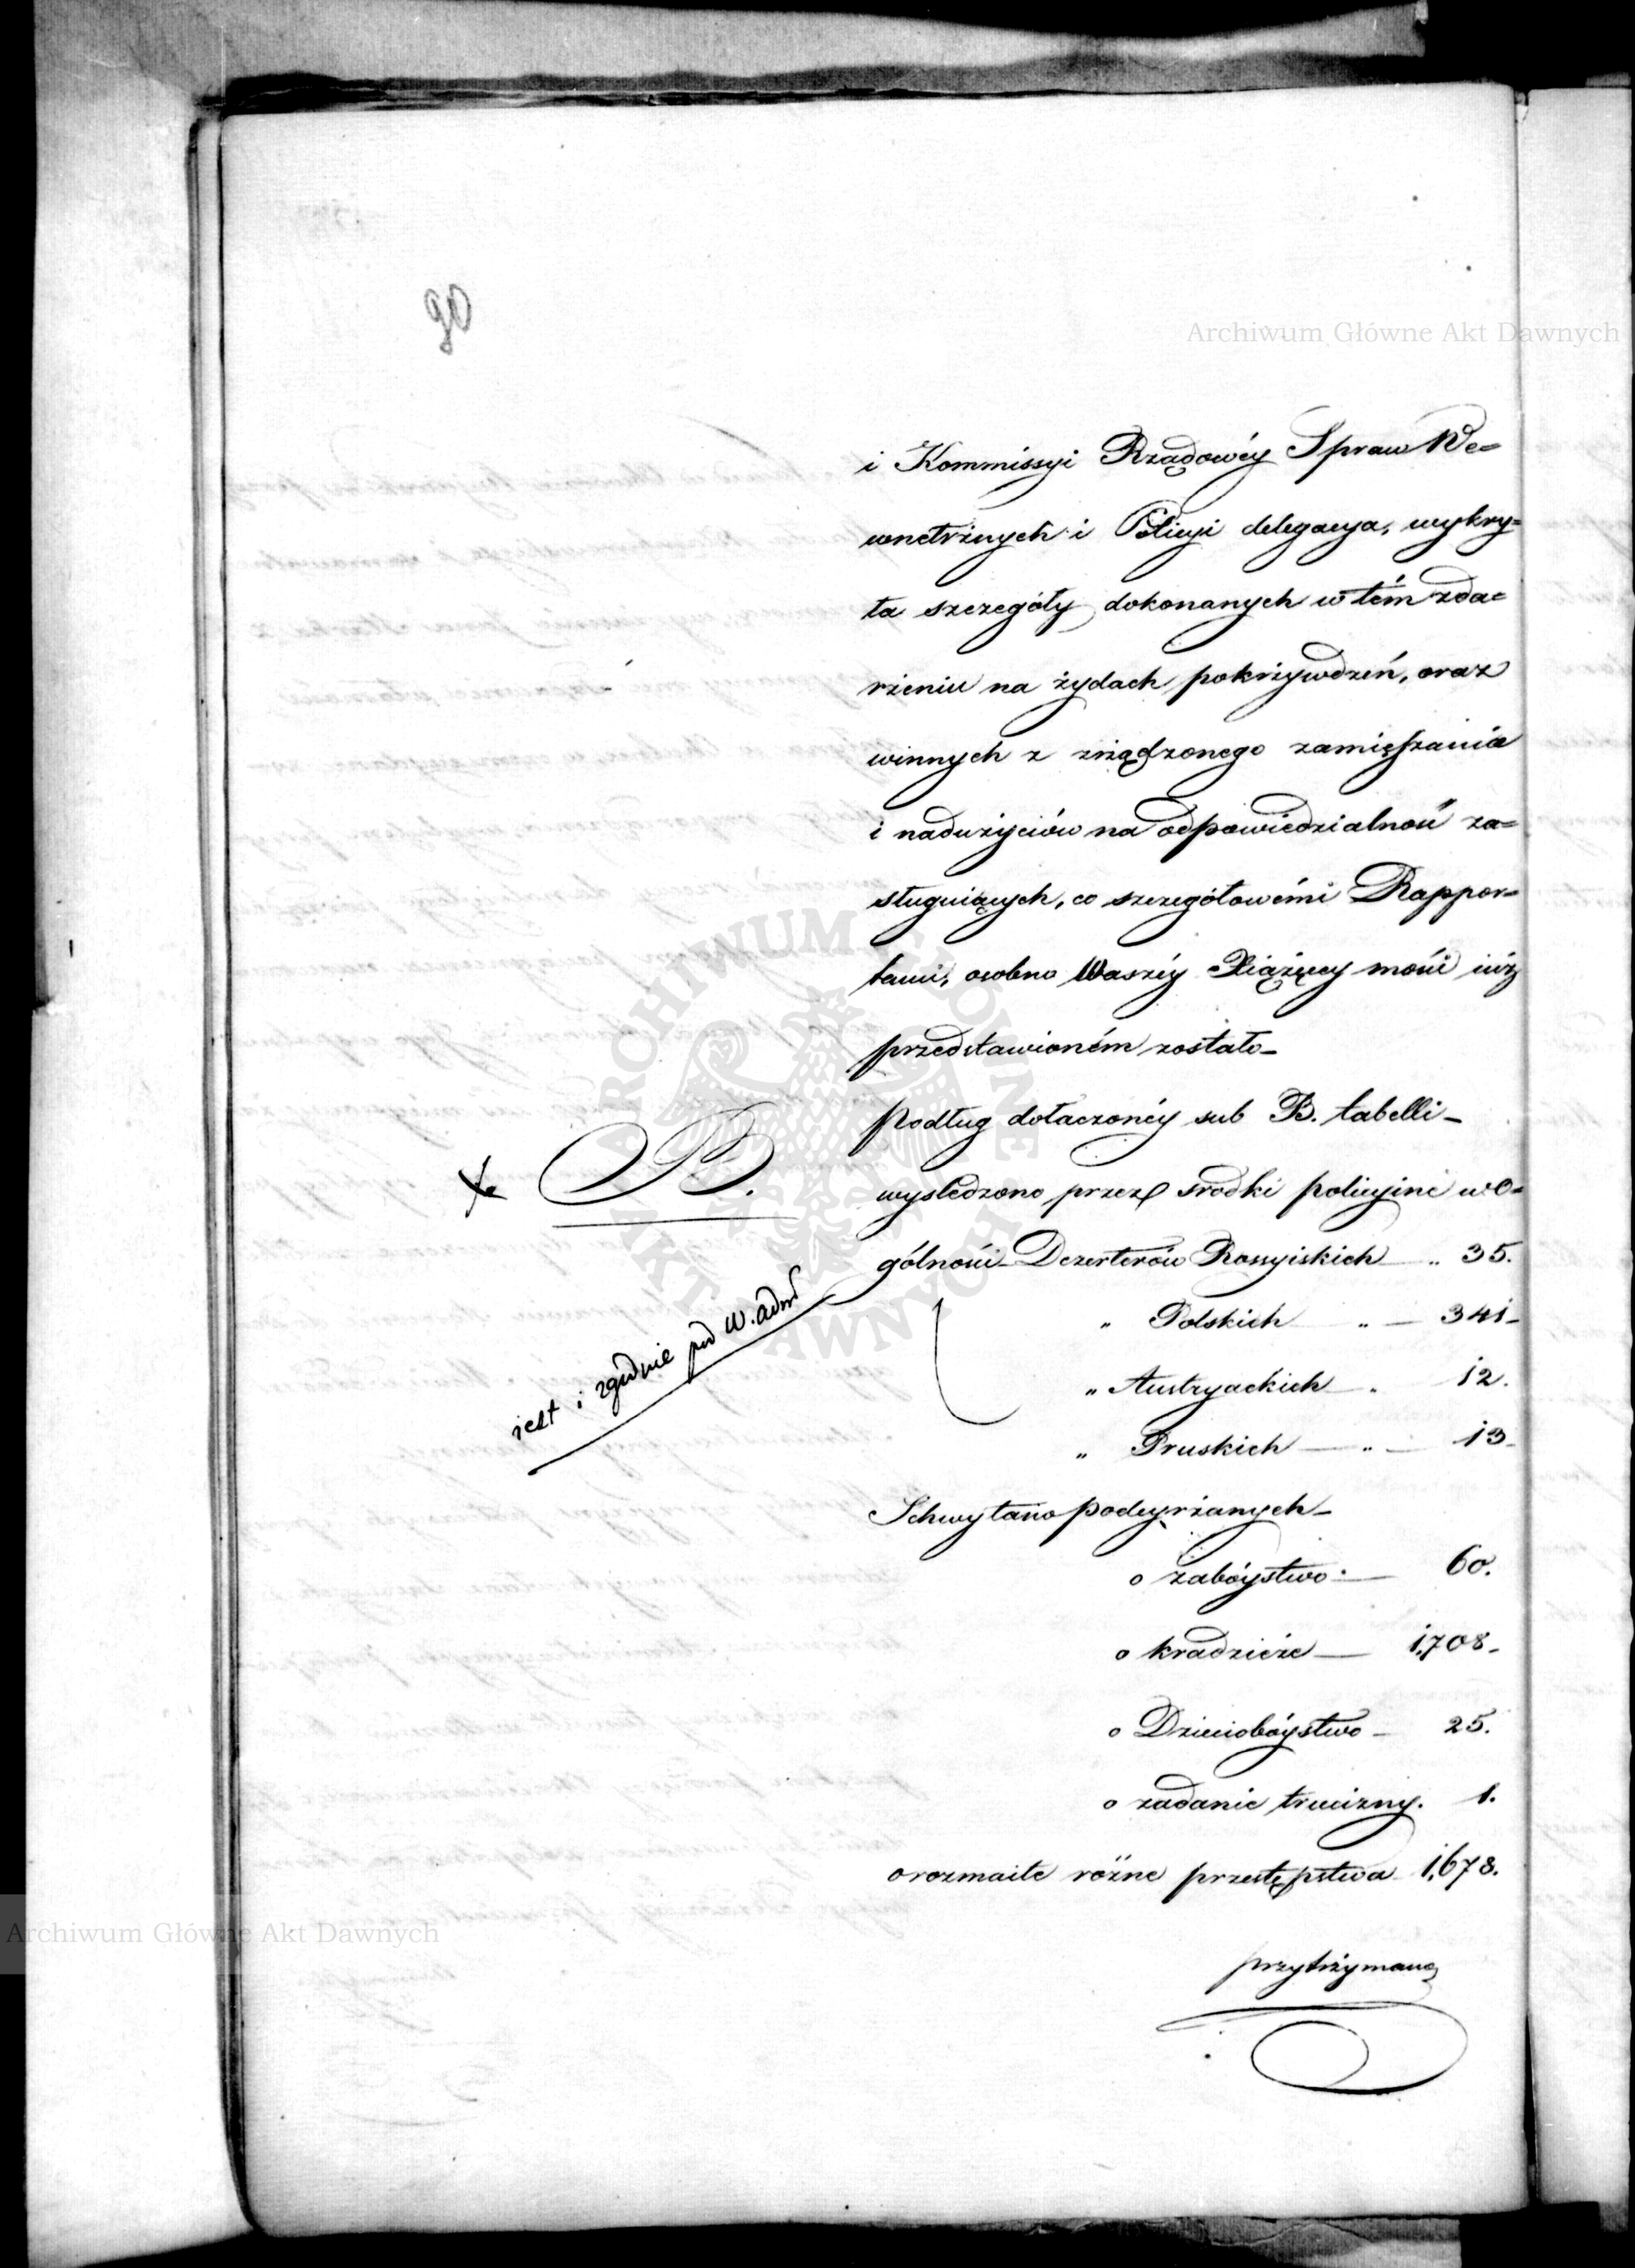 90
Archiwum Główne Akt Dawnych
i Kommissyi Rządowéy Spraw We=
wnetrżnych i Policyi delegacya, wykry=
ta szczegóły dokonanych w tém zda=
rżeniu na żydach pokrżywdzeń, oraz
winnych z zrządzonego zamięszania
i nadużyciów na odpowiedzialność za=
sługuiących, co szczegółowémi Rappor=
tami, osobno Waszéy Xiążęcy mości iuż
przedstawioném zostało_
podług dołaczonéy sub B. tabelli_
X B.
wysledzono przez srodki policyine wo=
gólności Dezerterów Rossyiskich „ 35.
„ Polskich „ — 341_
„ Austryackich „ 12.
„ Pruskich — „ — 13_
iest i zgodnie pod W. adm
Schwytano podeyrżanych_
o zabóystwo — 60.
o kradzieże — 1,708_
o Dzieciobóystwo _ 25.
o zadanie trucizny. 1.
o rozmaite różne przestępstwa 1,678.
przytrżymano
Archiwum Główne Akt Dawnych
ARCHIWUM GŁÓWNE AKT DAWNYCH